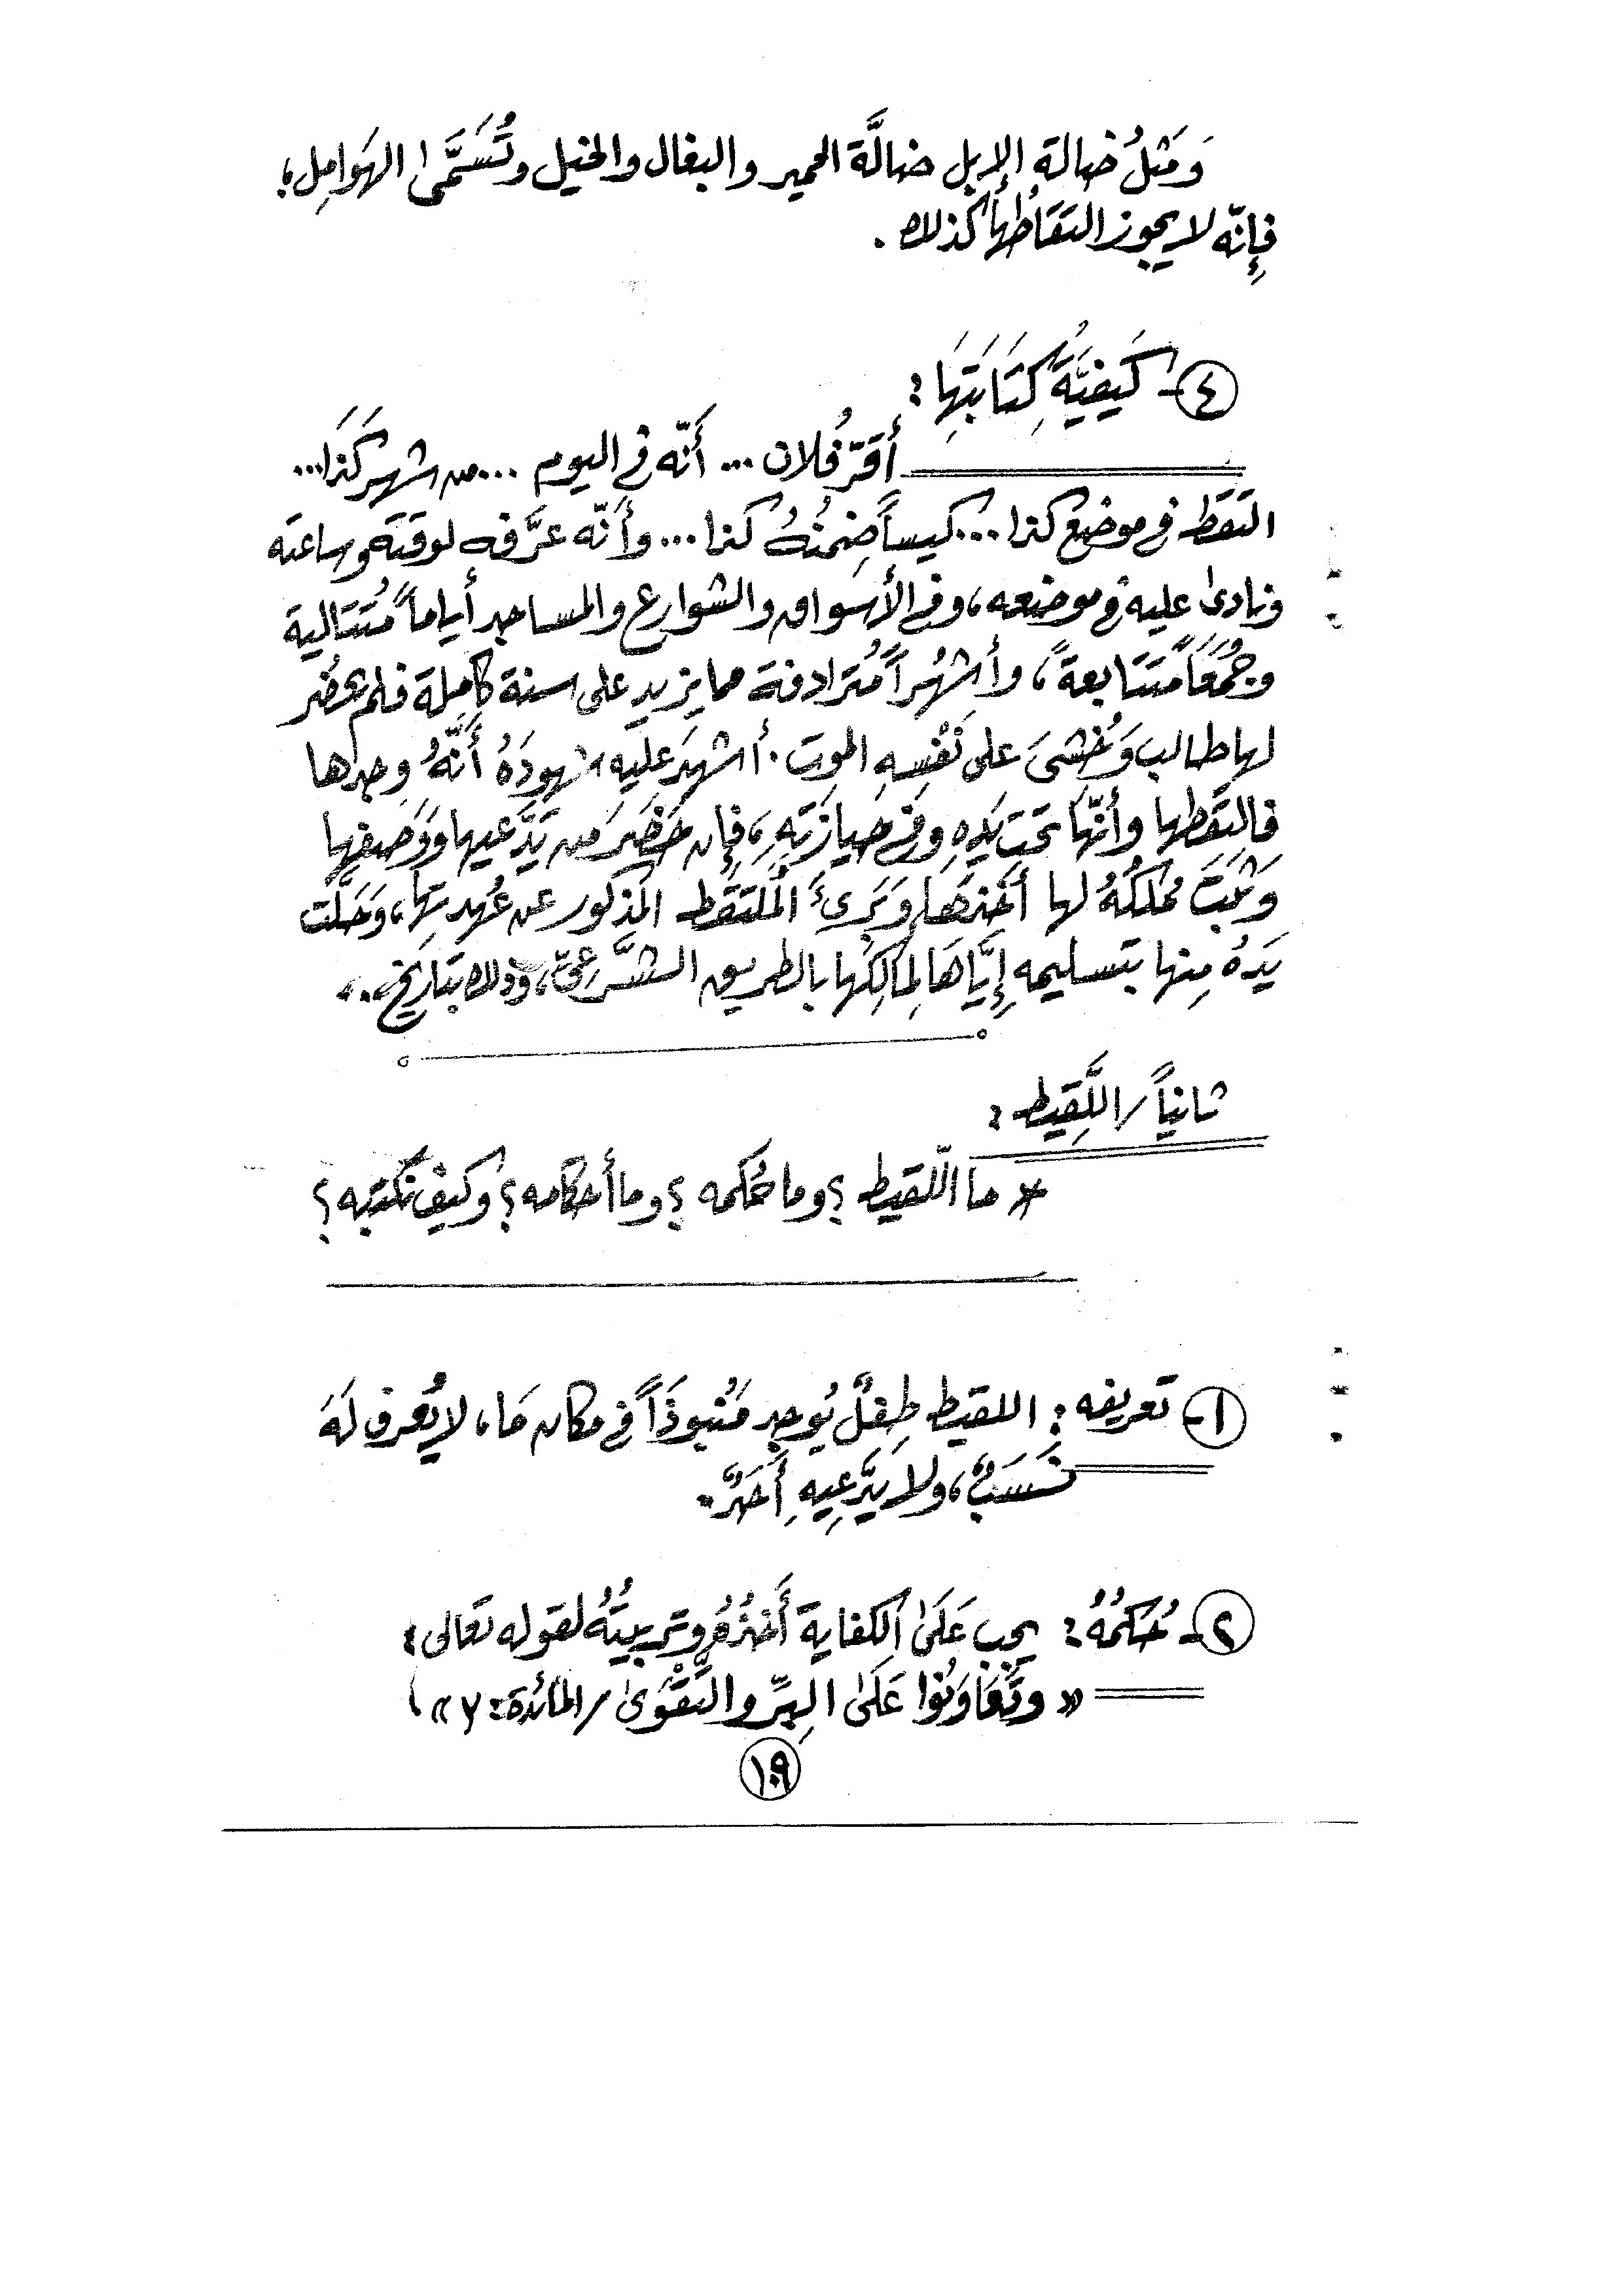 وَمَثلُ ضالة الإبل ضالَّة الحمير والبغال والخيل وتُسَمَّى الهَوامِل؛
فإِنّه لا يجوز التقاطُها كذلك.
٤- كَيفيَّةُ كِتَابَتِهَا:
أَقَرّ فُلان ... أَنّه في اليوم ... من شهر كَذَا...
التقَط في موضع كذا ... كيساً ضِمنُهُ كذا... وأَنّه عَرَّفه لوقته وساعته
ونادى عليه في موضعه، وفي الأسواق والشوارع والمساجد أياماً مُتتالية
وجُمَعَاً مُتتَابعة، وأشهُراً مُترادفة مما يزيد على سنة كامِلة فلم يحضُر
لها طالب وَخُشىَ على نَفْسِهِ الموت. أشهدَ عليه شهودَهُ أَنَّهُ وجدها
فالتقَطها وأنّها تحت يَدِهِ وفي حيازَتِهِ، فإِن حَضَرَ مَن يَدَّعيها وَوَصفها
وَثَبَتَ مُلكُهُ لها أَخذهَا، وَبَرِئَ المُلتَقِط المذكور عن عُهدتِها، وَخَلَت
يَدهُ مِنها بتسليمه إِيَّاهَا لمالِكها بالطريق الشَّرعىّ، وذلك بتاريخ...
ثانياً / اللَّقِيط:
* ما اللّقيط؟ وما حُكمه؟ وما أحكامه؟ وكيف نكتبه؟
١- تعريفه: اللقيط طِفلٌ يُوجد مَنْبوذَاً في مكان مَا، لا يُعرف لَهَ
نَسَبٌ، ولا يَدَّعِيهِ أَحَدٌ.
٢- حُكمُهُ: يجب عَلَى الكفاية أَخذُهُ وتربيتُهُ لقوله تعالى:
« وتَعَاوَنُوا عَلَى البِرِّ والتَّقْوَى / المائدة: ٧ »
١٠٩